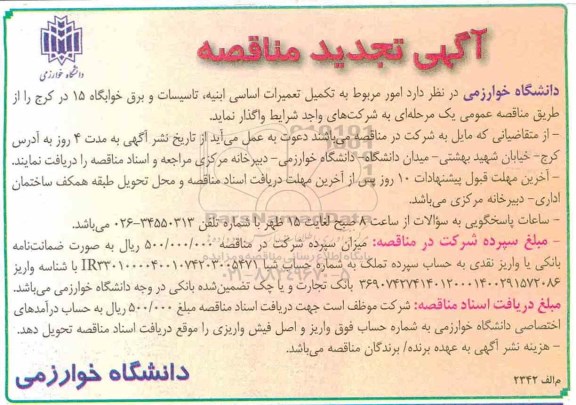 آگهی تجدید مناقصه
دانشگاه خوارزمی
دانشگاه خوارزمی در نظر دارد امور مربوط به تکمیل تعمیرات اساسی ابنیه، تاسیسات و برق خوابگاه ۱۵ در کرج را از
طریق مناقصه عمومی یک مرحله‌ای به شرکت‌های واجد شرایط واگذار نماید.
- از متقاضیانی که مایل به شرکت در مناقصه می‌باشند دعوت به عمل می‌آید از تاریخ نشر آگهی به مدت ۴ روز به آدرس
کرج- خیابان شهید بهشتی- میدان دانشگاه- دانشگاه خوارزمی- دبیرخانه مرکزی مراجعه و اسناد مناقصه را دریافت نمایند.
- آخرین مهلت قبول پیشنهادات ۱۰ روز پس از آخرین مهلت دریافت اسناد مناقصه و محل تحویل طبقه همکف ساختمان
اداری- دبیرخانه مرکزی می‌باشد.
- ساعات پاسخگویی به سؤالات از ساعت ۸ صبح لغایت ۱۵ ظهر با شماره تلفن ۳۴۵۵۰۳۱۳-۰۲۶ می‌باشد.
- مبلغ سپرده شرکت در مناقصه: میزان سپرده شرکت در مناقصه ۵۰۰/۰۰۰/۰۰۰ ریال به صورت ضمانت‌نامه
بانکی یا واریز نقدی به حساب سپرده تملک به شماره حساب شبا با شناسه واریز
بانک تجارت و یا چک تضمین‌شده بانکی در وجه دانشگاه خوارزمی می‌باشد.
مبلغ دریافت اسناد مناقصه: شرکت موظف است جهت دریافت اسناد مناقصه مبلغ ۵۰۰/۰۰۰ ریال به حساب درآمدهای
اختصاصی دانشگاه خوارزمی به شماره حساب فوق واریز و اصل فیش واریزی را موقع دریافت اسناد مناقصه تحویل دهد.
- هزینه نشر آگهی به عهده برنده/ برندگان مناقصه می‌باشد.
م‌الف ۲۳۴۲
دانشگاه خوارزمی